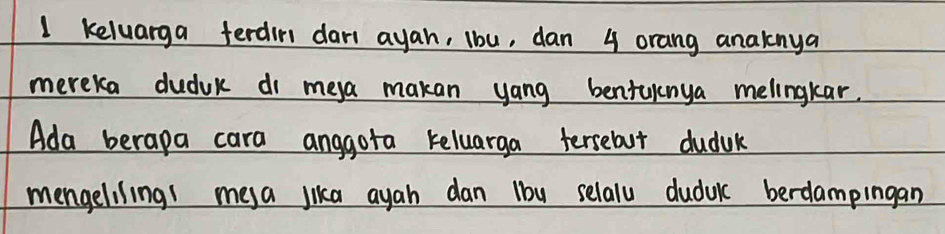 1 keluarga terdiri dari ayah, ibu, dan 4 orang anaknya
mereka duduk di meja makan yang bentuknya melingkar.
Ada berapa cara anggota keluarga tersebut duduk
mengelilingi meja jika ayah dan ibu selalu duduk berdampingan